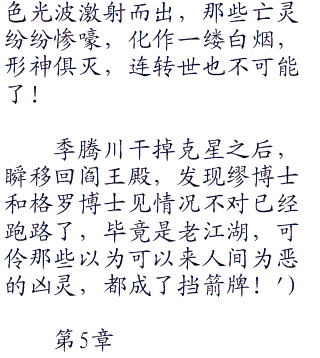 色光波激射而出，那些亡灵
纷纷惨嚎，化作一缕白烟，
形神俱灭，连转世也不可能
了！
季腾川干掉克星之后，
瞬移回阎王殿，发现缪博士
和格罗博士见情况不对已经
跑路了，毕竟是老江湖，可
伶那些以为可以来人间为恶
的凶灵，都成了挡箭牌！')
第5章